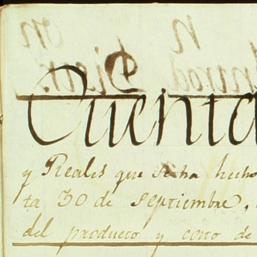 Cuenta
y Reales que se ha hecho
ta 30 de Septiembre,
del producto y costo de